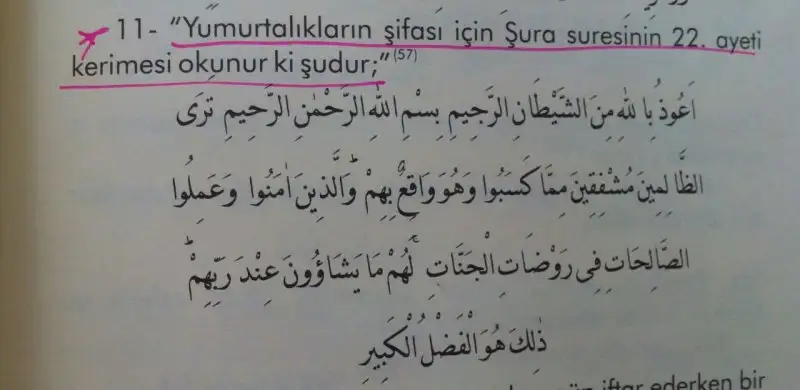 11- "Yumurtalıkların şifası için Şura suresinin 22. ayeti
kerimesi okunur ki şudur;" (57)
اَعُوذُ بِاللّٰهِ مِنَ الشَّيْطَانِ الرَّجِيمِ بِسْمِ اللّٰهِ الرَّحْمٰنِ الرَّحِيمِ تَرَى
الظَّالِمِينَ مُشْفِقِينَ مِمَّا كَسَبُوا وَهُوَ وَاقِعٌ بِهِمْ ۜ وَالَّذِينَ اٰمَنُوا وَعَمِلُوا
الصَّالِحَاتِ فِى رَوْضَاتِ الْجَنَّاتِ ۚ لَهُمْ مَا يَشَاؤُونَ عِنْدَ رَبِّهِمْ ۜ
ذٰلِكَ هُوَ الْفَضْلُ الْكَبِيرُ
iftar ederken bir